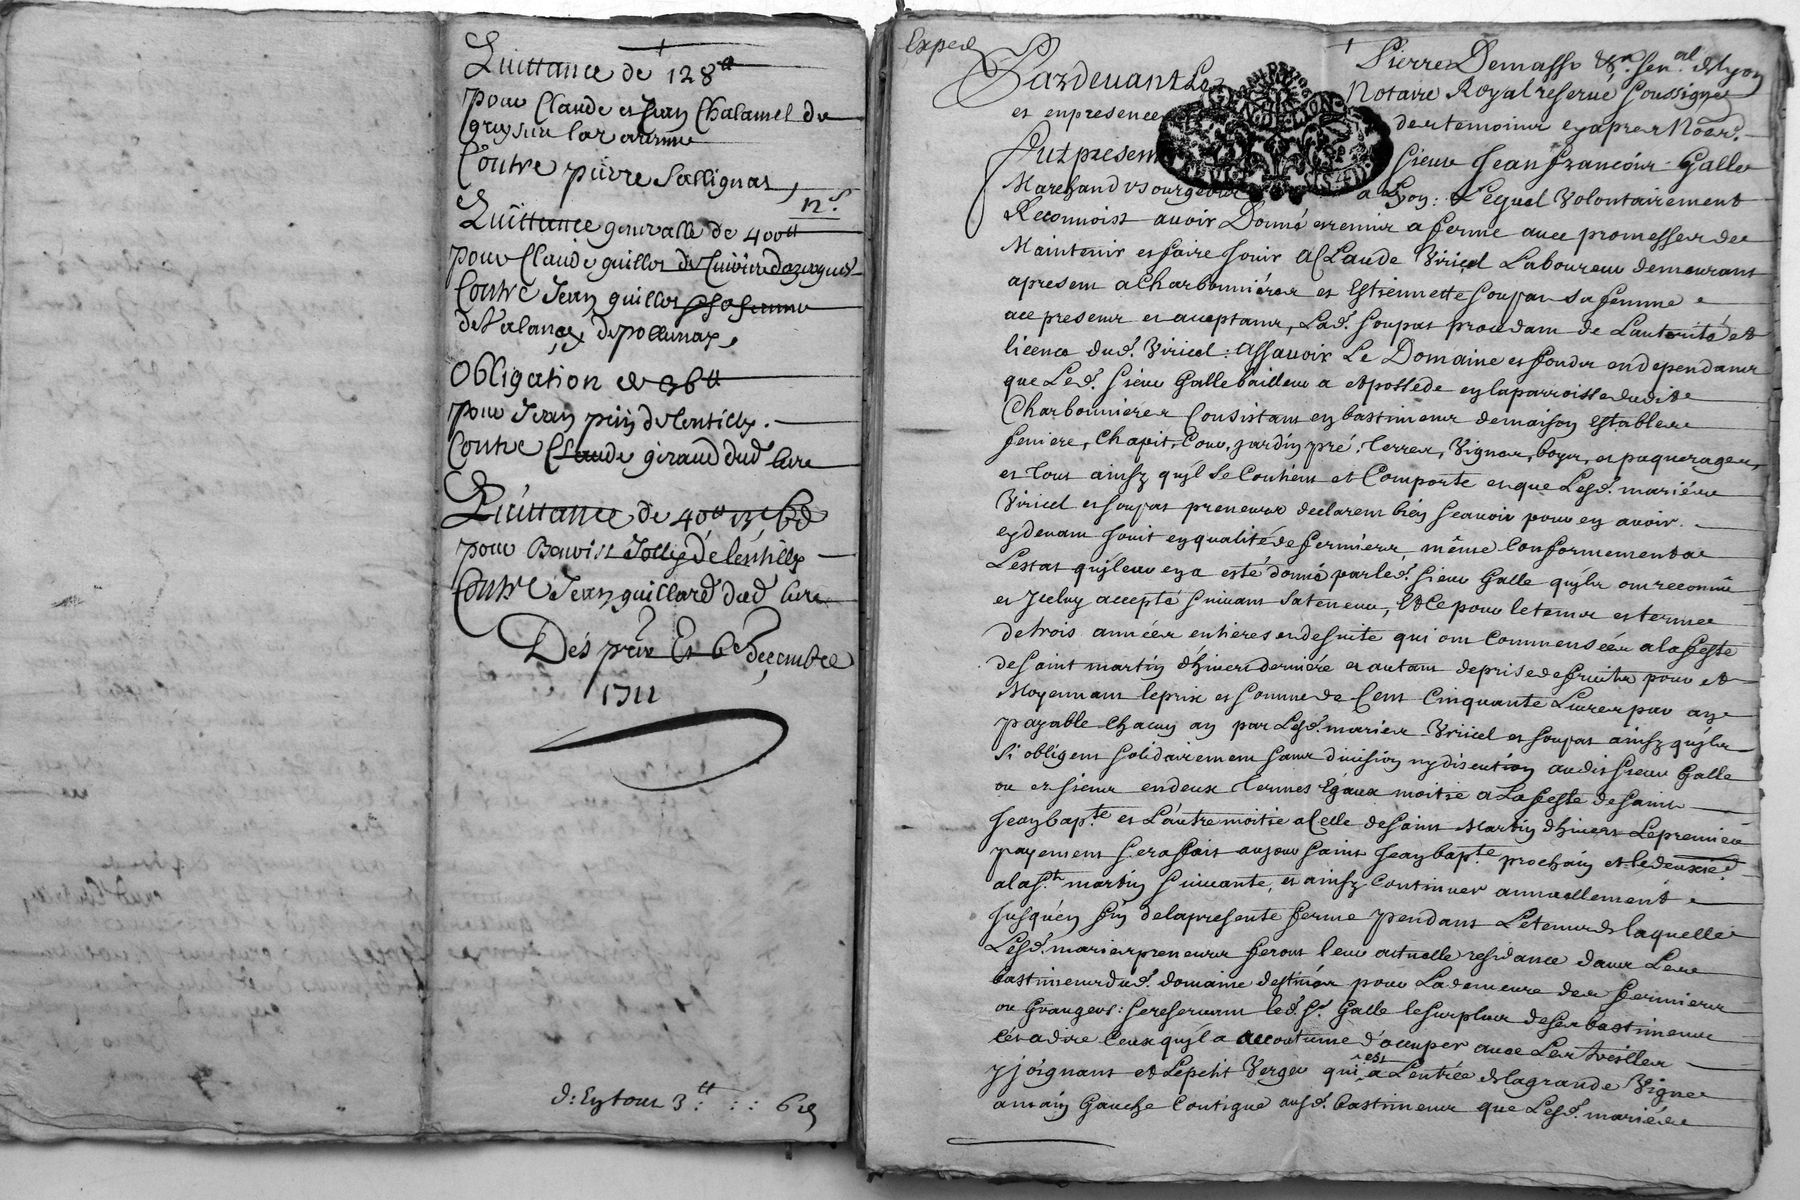 Quittance de 128 tt
pour Claude et Jean Chalamel de
Gresieu la varenne
Contre pierre Sallignat,
12 s
Quittance generalle de 400 tt
pour Claude guillot de Civrieu dazergues
Contre Jean guillot
de Valancey de pollionay,
Obligation de 96 tt
pour Jean pin de lentilly.
Contre Claude giraud dud. lieu
Quittance de 40 tt
pour Benoist Jolly de lentilly
Contre Jean guillard dud. lieu
Des prer Et 6e decembre
1711
d: Eytour 3 tt : : : 6 d
Exped
Pierre Demasso Sen.al de Lyon
Pardevant Le Notaire Royal reservé Soussigné
et en presence des temoins cy apres Noes.
fut present Sieur Jean francois Galle
Marchand Bourgeois a Lyon: Lequel Volontairement
Reconnoist avoir Donné et remis a ferme avec promesse de
Maintenir et faire Jouir a Claude Viricel Laboureur demeurant
a present a Charbonnieres et Estiennette Soupat sa femme
ace presens et acceptans, Lad. Soupat procedant de L'autorité et
licence dud. Viricel: assavoir Le Domaine et fonds en dependans
que Led. Sieur Galle bailleur a et possede en la parroisse dudit
Charbonnieres Consistant en bastimens de maison estables
feniere, Chapit, Cour, jardin, pré, Terres, Vignes, boys, et paquerages,
et Tout ainsy qu'il se Contient et Comporte et que Lesd. mariés
Viricel et Soupat preneurs declarent bien scavoir pour en avoir
cy devant Jouit en qualité de fermiers, même Conformement a
L'estat qu'il leur en a esté donné par led. Sieur Galle qu'ils ont reconnu
et Iceluy accepté suivant sa teneur, Et Ce pour le tems et terme
de trois années entieres et de suite qui ont Commensées a la feste
de saint martin d'hivers derniere et autant de prise de fruits pour et
Moyennant le prix et somme de Cent Cinquante Livres par an
payable chacun an par Lesd. mariés Viricel et Soupat ainsy qu'ils
s'i obligent solidairement sans division ny discution audit sieur Galle
ou es siens en deux Termes Egaux moitie a La feste de saint
Jean bap.te et L'autre moitie a Celle de saint Martin d'hivers Le premier
payement serafait au jour saint Jean bap.te prochain et le deuxie.
a la s.t martin suivante, et ainsy Continuer annuellement
Jusqu'en fin de la presente ferme pendant Le tems de laquelle
Lesd. mariés preneurs feront leur actuelle residance dans Les
bastimens dud. domaine destinés pour La demeure des fermiers
ou Grangers: se reservant led. Sr. Galle le surplus de ses bastimens
cést a dire Ceux qu'il a accoutumé d'occuper avec Les treilles
y joignans et Le petit Verger qui est a L'entrée de la grande Vigne
a main Gauche Contigue ausd. bastimens que Lesd. mariés